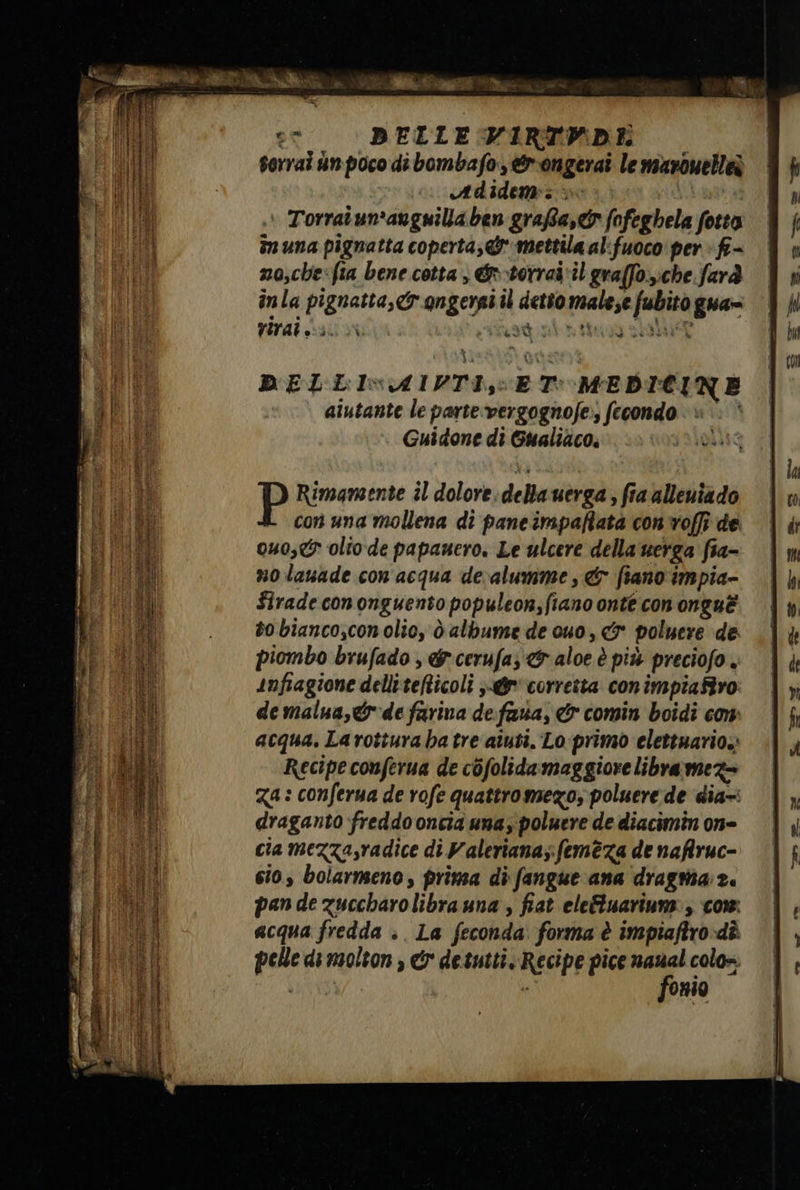 DELLE VIRTVDE
torrai un poco di bombaſo, & ongerai le marouelle;
Ad idem:
Torrai un'anguilla ben graſſa, & ſofeghela ſotto
in una pignatta coperta, & mettila al fuoco per fi-
no, che ſia bene cotta, & torrai il graſſo, che ſarà
in la pignatta, & ongerai il detto male, e ſubito gua-
rirai.
DELLI AIVTI, ET MEDICINE
aiutante le parte vergognoſe, ſecondo
Guidone di Gualiaco.
PRimamente il dolore della uerga, ſia alleuiado
con una mollena di pane impaſtata con roſſi de
ouo, & olio de papauero. Le ulcere della uerga ſia-
no lauade con acqua de alumme, & ſiano impia-
ſtrade con onguento populeon, ſiano onte con onguẽ
to bianco, con olio, ò albume de ouo, & poluere de
piombo bruſado, & ceruſa, & aloe è più precioſo.
infiagione delli teſticoli, & corretta con impiaſtro
de malua, & de farina de faua, & comin boidi con
acqua. La rottura ha tre aiuti. Lo primo elettuario.
Recipe conſerua de cõſolida maggiore libra mez-
za: conſerua de roſe quattro mezo, poluere de dia-
draganto freddo oncia una, poluere de diacimin on-
cia mezza, radice di Valeriana, ſemẽza de naſtruc-
cio, bolarmeno, prima di ſangue ana dragma 2.
pan de zuccharo libra una, fiat electuarium, con
acqua fredda. La ſeconda forma è impiaſtro dè
pelle di molton, & de tutti. Recipe pice naual colo-
fonio